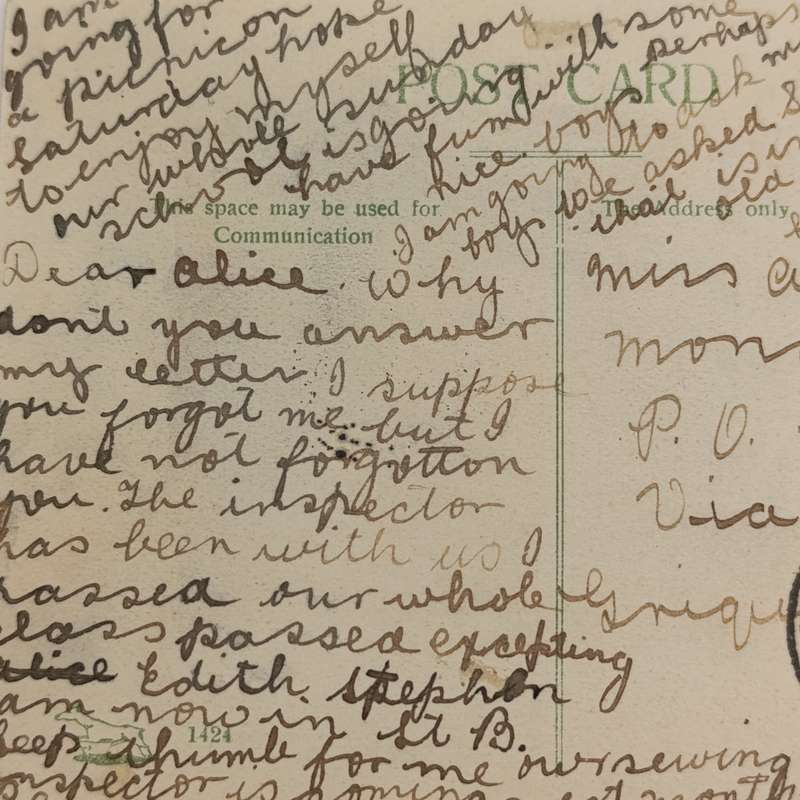 I am
going for
a picnic on
Saturday hope
to enjoy myself
our whole Sunday
school is going with some
have fun perhaps
nice boys
I am going to ask
boys we asked
old
POST CARD
This space may be used for
Communication
The Address only
Dear Alice. Why
dont you answer
my letter I suppose
you forgot me but I
have not forgotton
you. The inspector
has been with us I
passed our whole
class passed excepting
alice Edith. Stephen
am now in St B.
keep thumb for me our sewing
inspector is coming next month
Miss
P. O.
Via
Griqu
1424